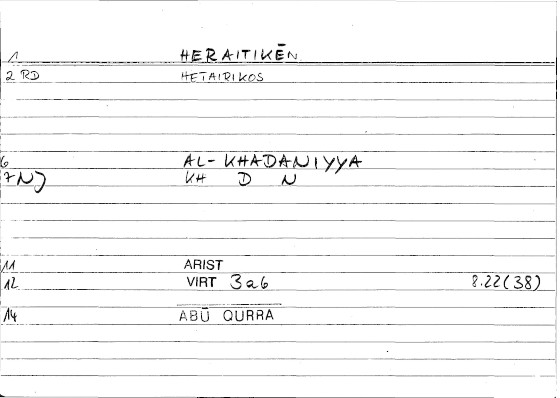 1 HERAITIKĒN
2 RD HETAIRIKOS
6 AL-KHADANIYYA
7 NJ KH D N
11 ARIST
12 VIRT 3a6 8.22(38)
14 ABŪ QURRA